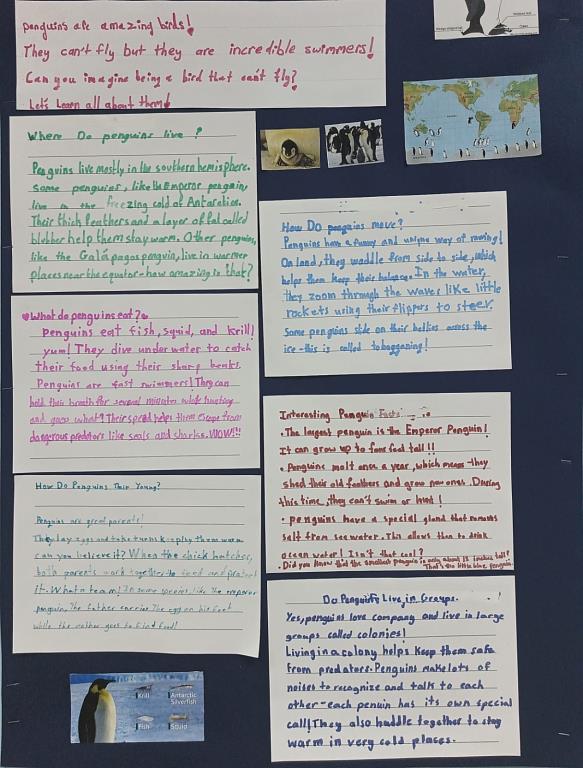 Penguins are amazing birds!
They can't fly but they are incredible swimmers!
Can you imagine being a bird that can't fly?
Let's Learn all about them!
Where Do penguins live?
Penguins live mostly in the southern hemisphere.
Some penguins, like the Emperor penguin,
live in the freezing cold of Antarctica.
Their thick feathers and a layer of fat called
blubber help them stay warm. Other penguins,
like the Galápagos penguin, live in warmer
places near the equator-how amazing is that?
How Do penguins move?
Penguins have a funny and unique way of moving!
On land, they waddle from side to side, which
helps them keep their balance. In the water,
they zoom through the waves like little
rockets using their flippers to steer.
Some penguins slide on their bellies across the
ice-this is called tobogganing!
What do penguins eat?
Penguins eat fish, squid, and krill!
yum! They dive underwater to catch
their food using their sharp beaks.
Penguins are fast swimmers! They can
hold their breath for several minutes while hunting
and guess what? Their speed helps them escape from
dangerous predators like seals and sharks. WOW!!!
Interesting Penguin Facts
• The largest penguin is the Emperor Penguin!
It can grow up to four feet tall!!
• Penguins molt once a year, which means they
shed their old feathers and grow new ones. During
this time, they can't swim or hunt!
• penguins have a special gland that removes
salt from seawater. This allows them to drink
ocean water! Isn't that cool?
• Did you know that the smallest penguin is only about 13 inches tall?
That's the little blue penguin.
How Do Penguins Their Young?
Penguins are great parents!
They lay eggs and take turns keeping them warm
can you believe it? When the chick hatches,
both parents work together to feed and protect
it. What a team! In some species, like the emperor
penguin, the father carries the egg on his feet
while the mother goes to find food!
Do Penguins Live in Groups.
Yes, penguins love company and live in large
groups called colonies!
Living in a colony helps keep them safe
from predators. Penguins make lots of
noises to recognize and talk to each
other-each penuin has its own special
call! They also huddle together to stay
warm in very cold places.
Krill
Antarctic
Silverfish
Fish
Squid